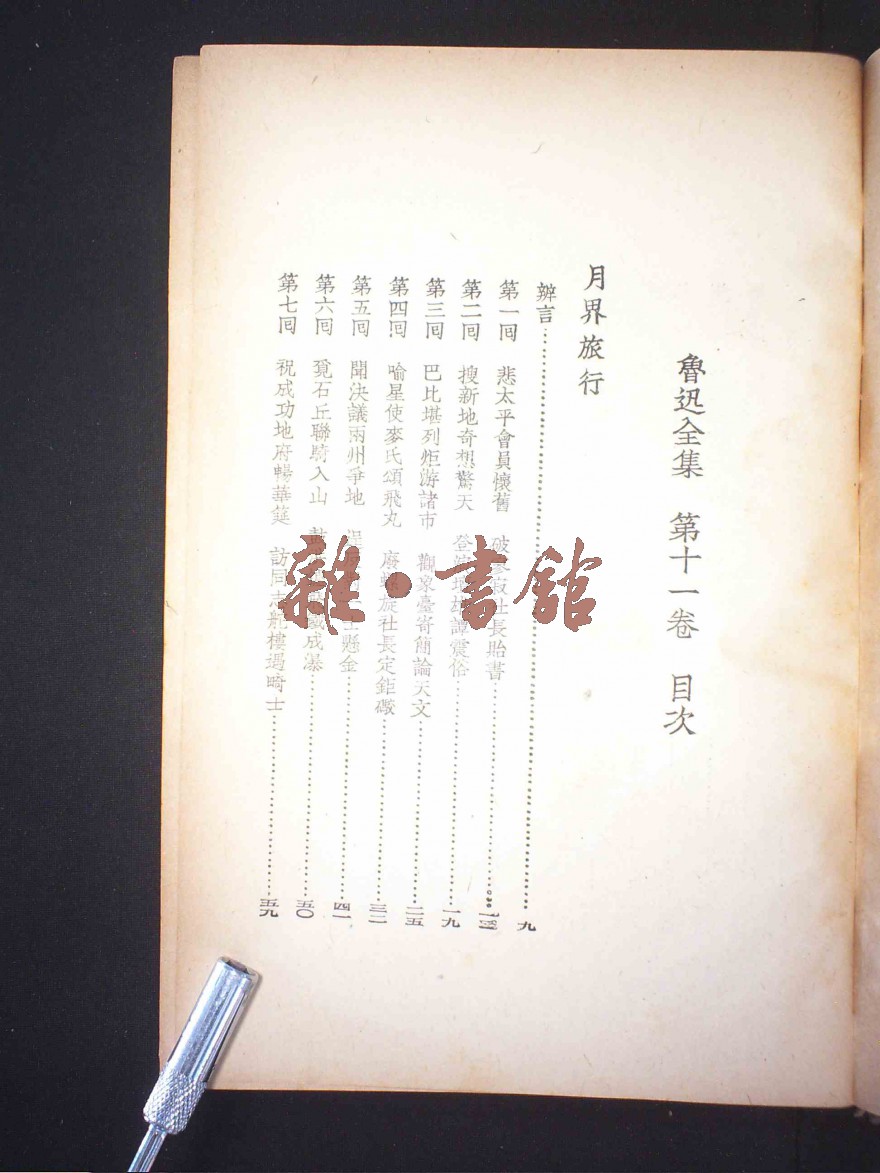 魯迅全集 第十一卷 目次
月界旅行
辨言 九
第一回 悲太平會員懷舊 破 寂社長貽書 一三
第二回 搜新地奇想驚天 登 震俗 一九
第三回 巴比堪列炬游諸市 觀象臺寄簡論天文 二五
第四回 喻星使麥氏頌飛丸 廢螺旋社長定鉅礮 三二
第五回 聞決議兩州爭地 懸金 四一
第六回 覓石丘聯騎入山 成瀑 五〇
第七回 祝成功地府暢華筵 訪同志舵樓遇畸士 五九
雜·書館